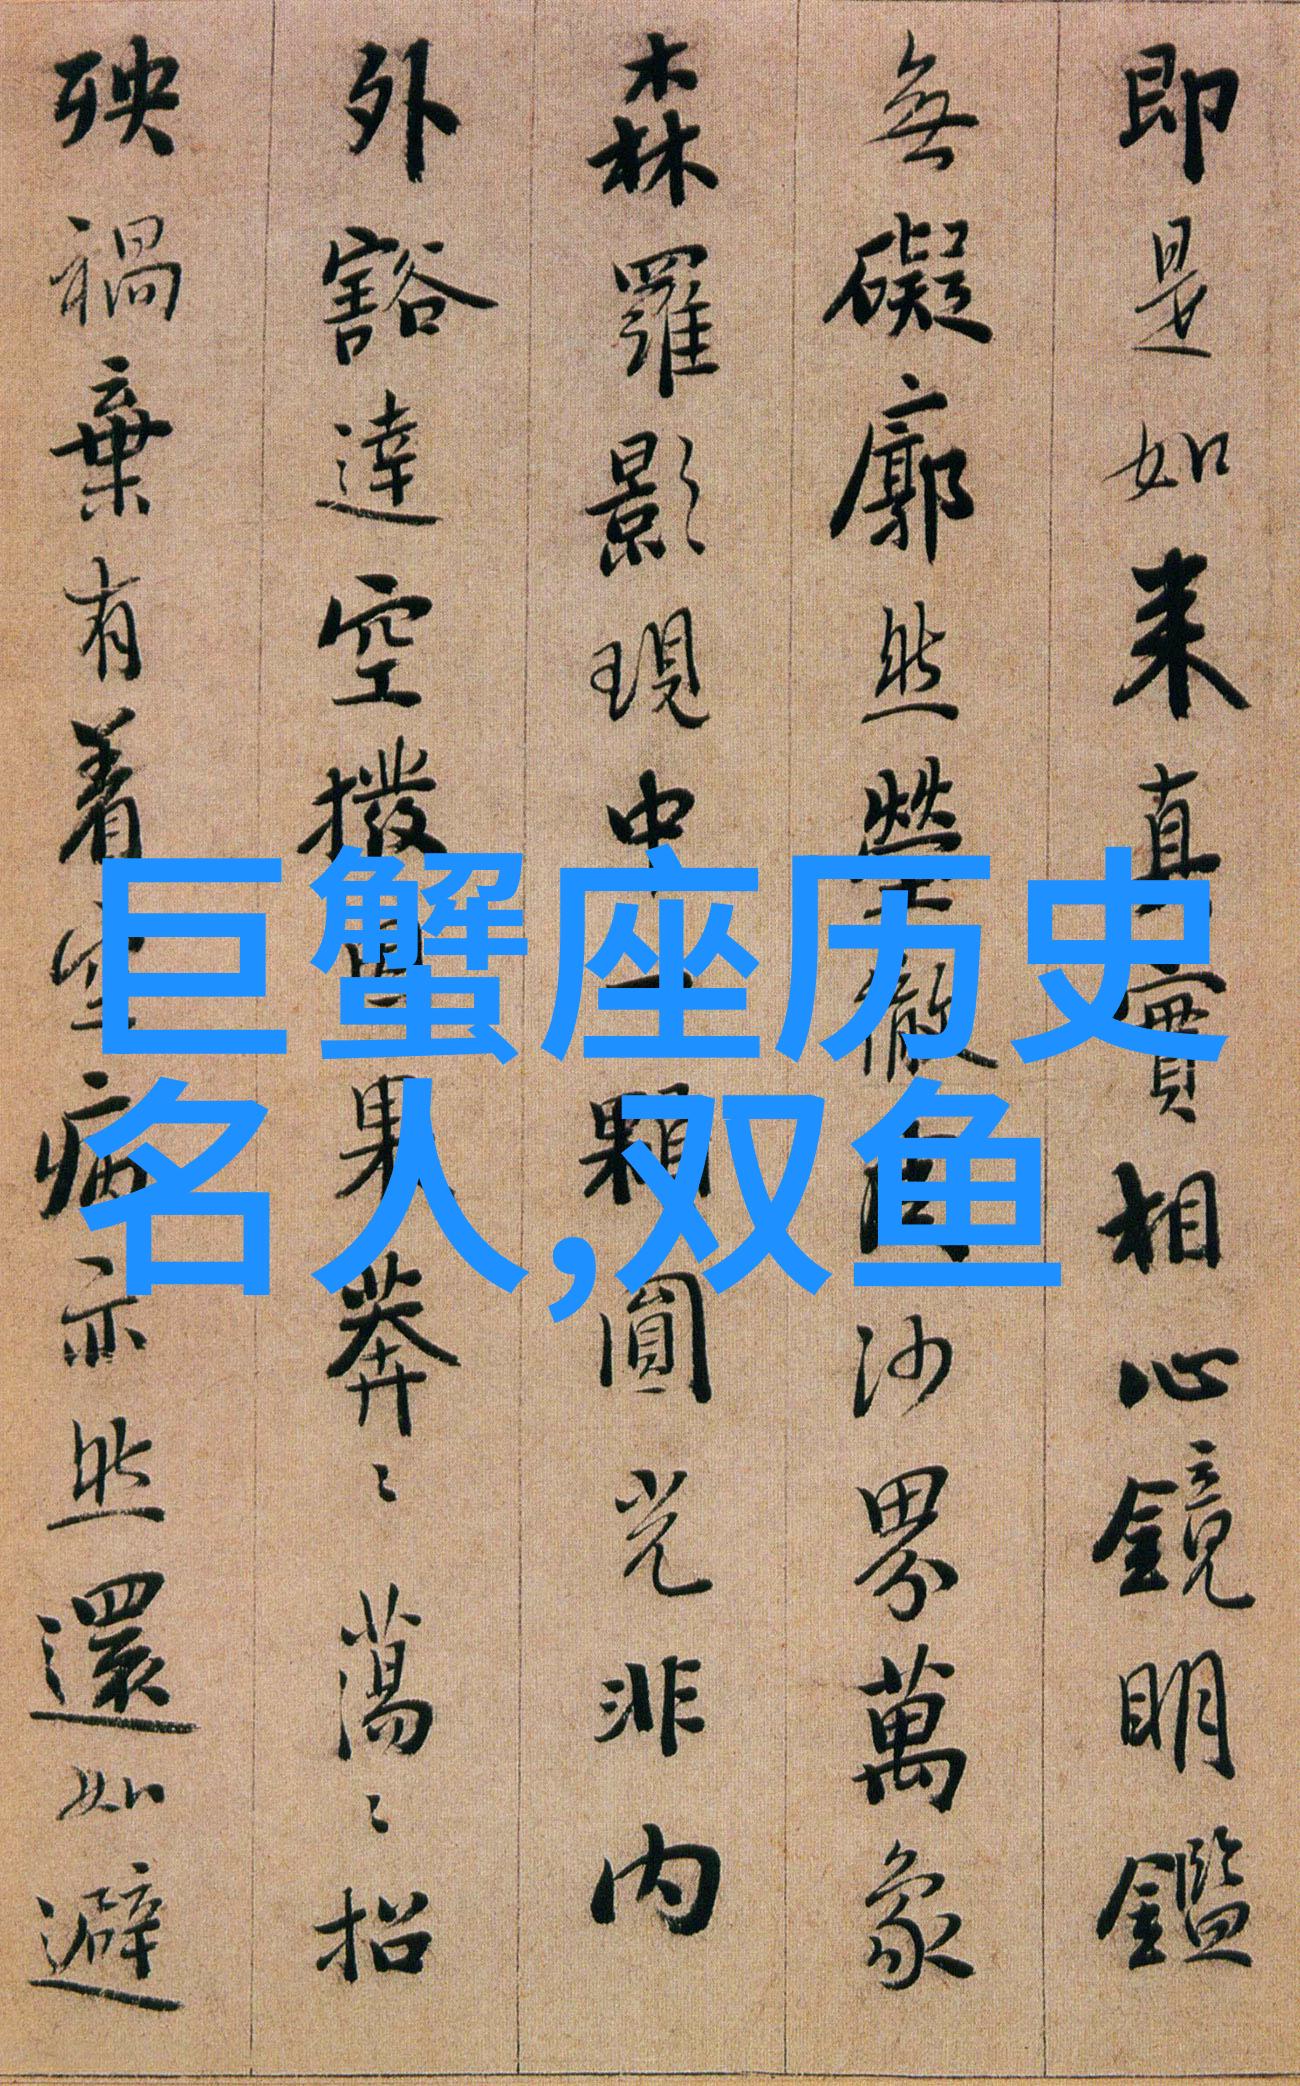 巨蟹座历史
名人,双鱼
即是如来真實相心鏡明鑑
無礙廓然瑩徹周沙界萬象
森羅影現中一顆圓光非内
外豁達空撥因果莽〻蕩〻招
殃禍棄有着空病亦然還如避